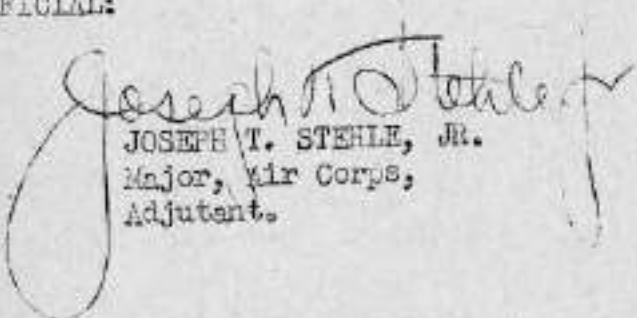 FICIAL:
Joseph T Stehle Jr
JOSEPH T. STEHLE, JR.
Major, Air Corps,
Adjutant.